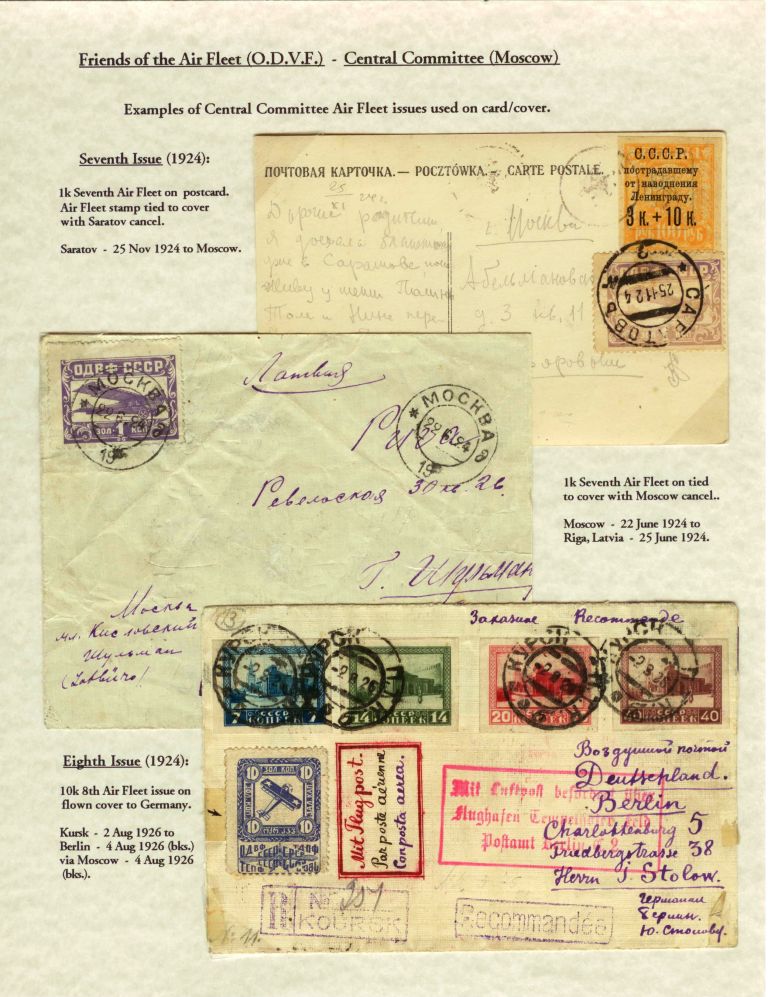 Friends of the Air Fleet (O.D.V.F.) - Central Committee (Moscow)
Examples of Central Committee Air Fleet issues used on card/cover.
Seventh Issue (1924):
1k Seventh Air Fleet on postcard.
Air Fleet stamp tied to cover
with Saratov cancel.
Saratov - 25 Nov 1924 to Moscow.
ПОЧТОВАЯ КАРТОЧКА. — POCZTÓWKA. — CARTE POSTALE.
25
XI
Дорогие родители
г. Москва
д. 3 кв. 11
С.С.С.Р.
пострадавшему
от наводнения
Ленинграду.
3 к. + 10 к.
САРАТОВЪ
25-11 24
ОДВФ СССР
ЗОЛ. 1 КОП
МОСКВА
22.6.24
19
МОСКВА
22.6.24
19
Латвия
Рига
Ревельская 30 кв. 26.
Г. Шульман
Москва
мл. Кисловский
Шульман
1k Seventh Air Fleet on tied
to cover with Moscow cancel..
Moscow - 22 June 1924 to
Riga, Latvia - 25 June 1924.
Eighth Issue (1924):
10k 8th Air Fleet issue on
flown cover to Germany.
Kursk - 2 Aug 1926 to
Berlin - 4 Aug 1926 (bks.)
via Moscow - 4 Aug 1926
(bks.).
13
Заказное Recommandé
КУРСК
-2.8.26
7 КОПЕЕК 7
14 КОПЕЕК 14
20 КОПЕЕК
КОПЕЕК 40
10 ЗОЛ. КОП. 10
10 10
ОДВФ
СССР
Mit Flugpost.
Par poste aérienne
Con posta aerea.
Mit Luftpost befördert über
Flughafen Tempelhofer Feld
Postamt Berlin C.2
Воздушной почтой
Deutschland.
Berlin
Charlottenburg 5
Friedbergstrasse 38
Herrn J. Stolow.
Германия
Берлин.
Ю. Столову.
R
KOURSK
Recommandée